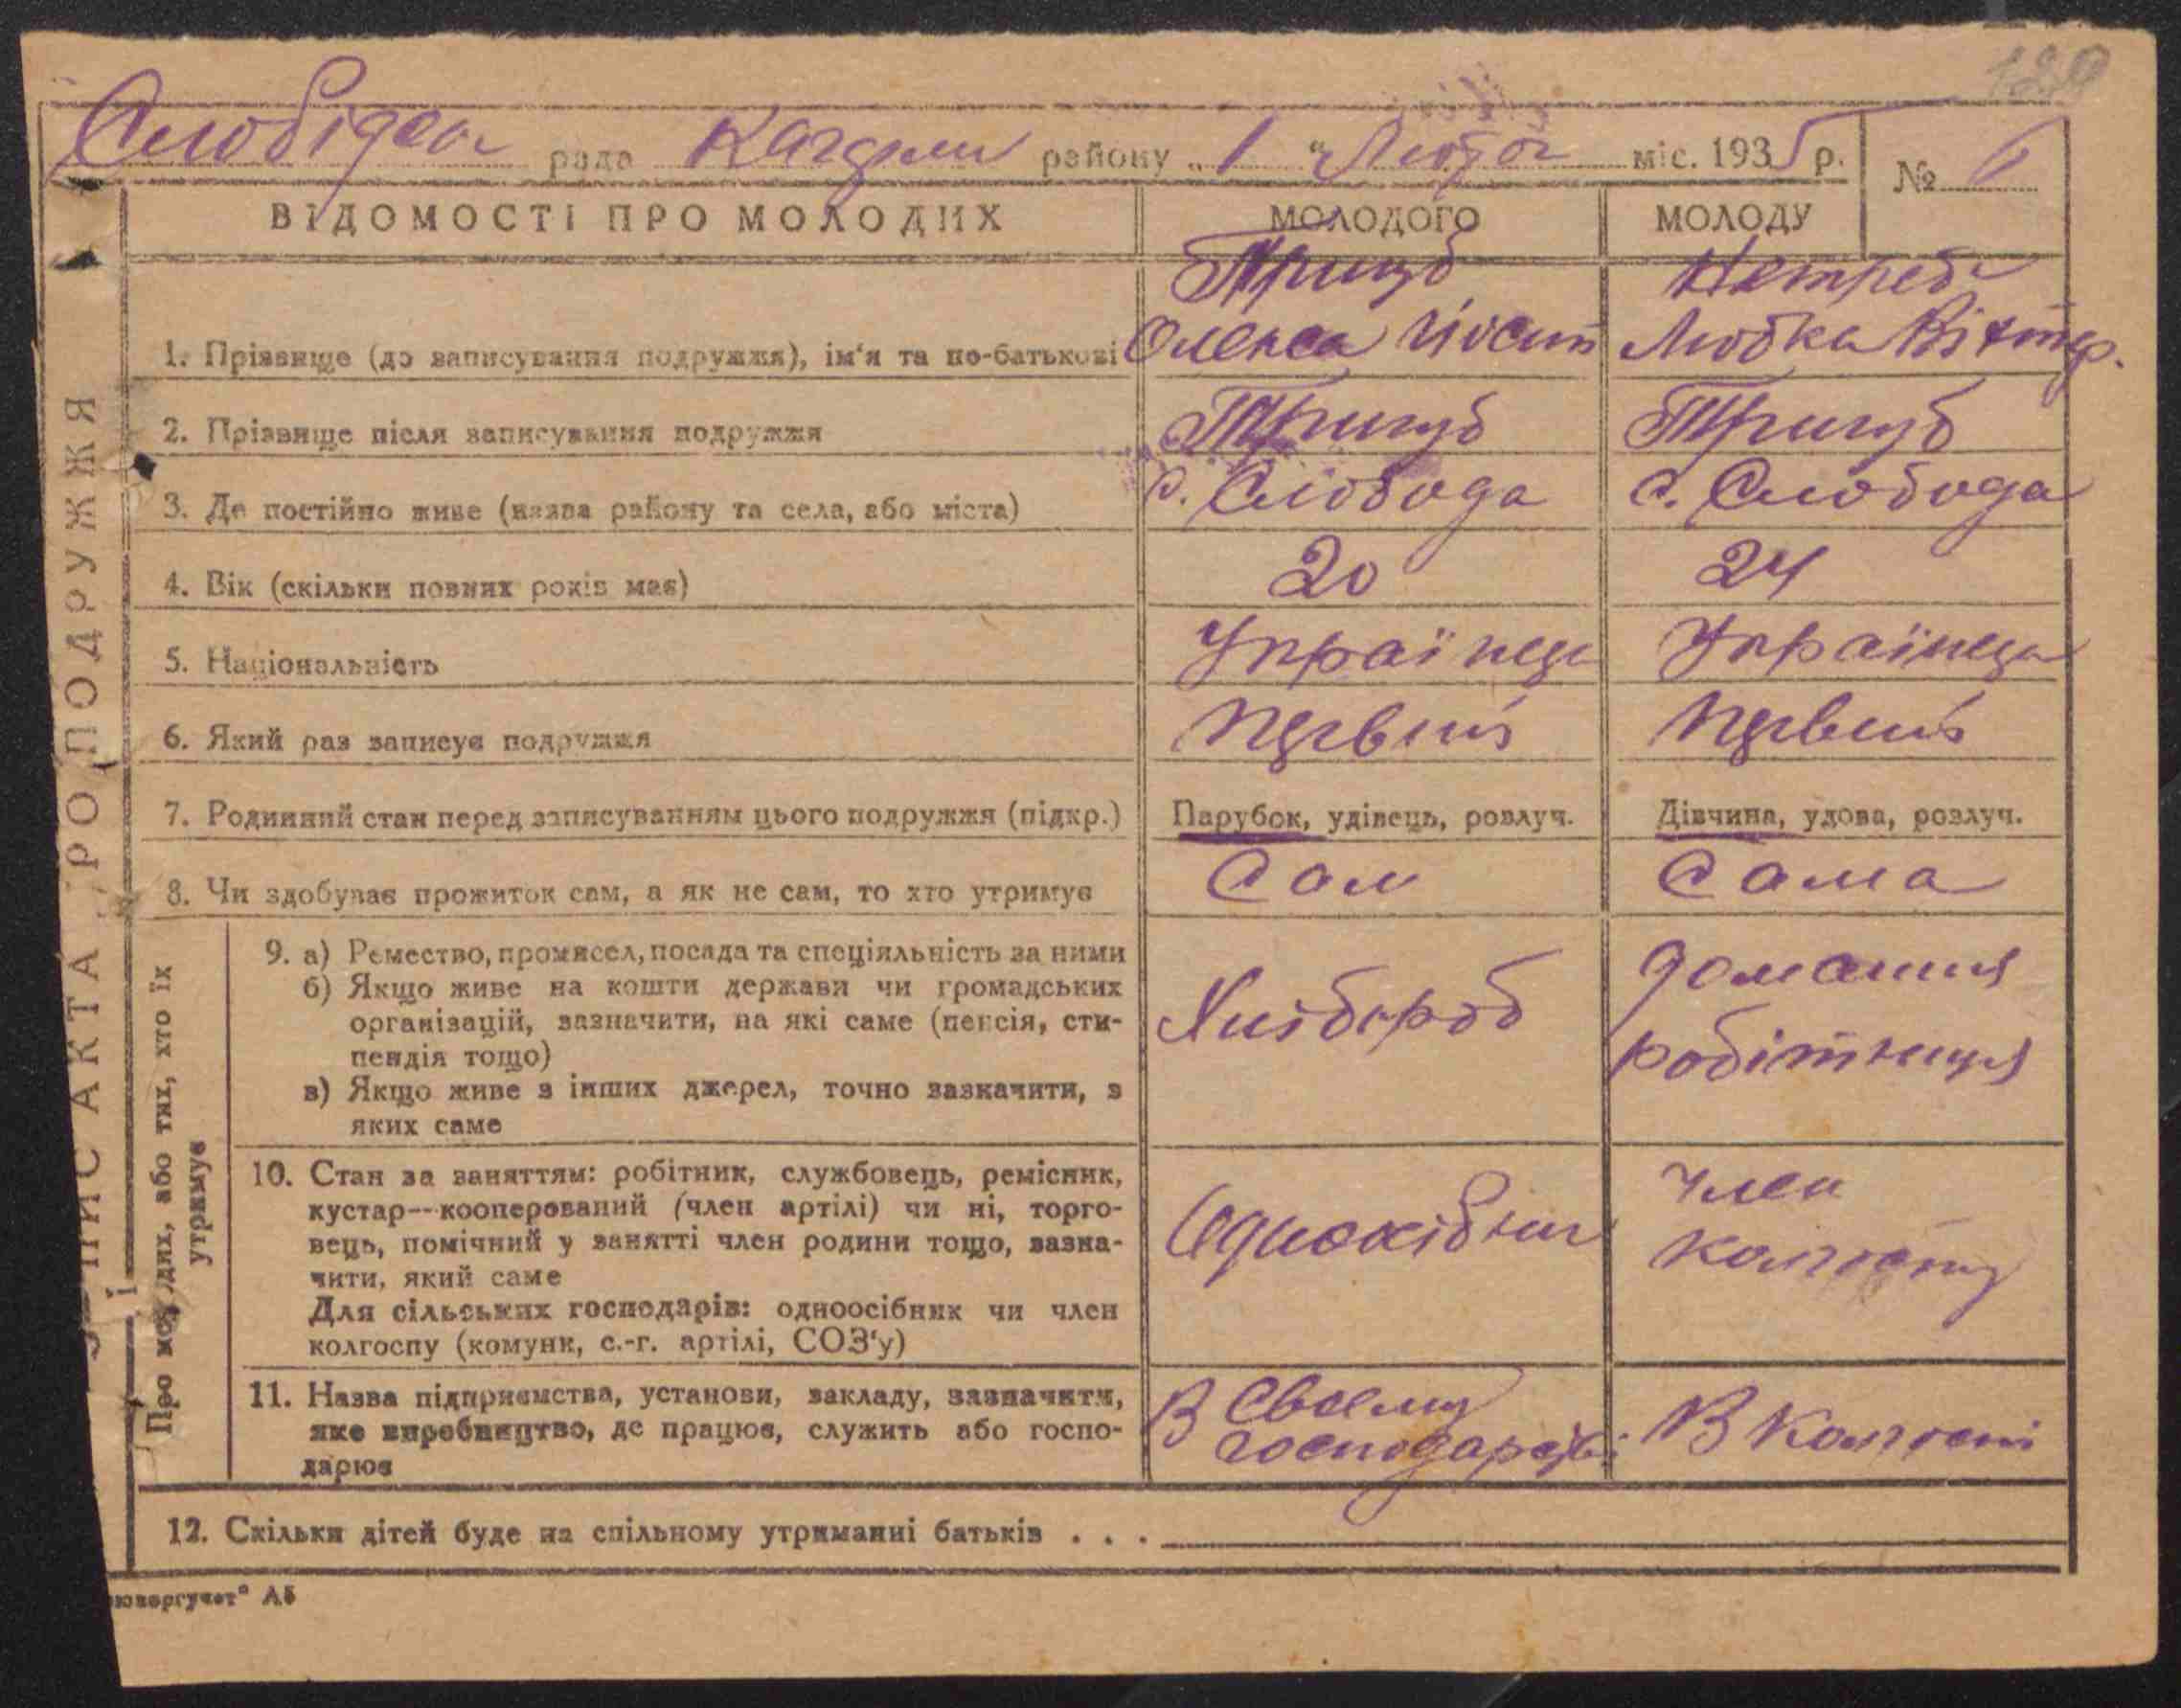 120
Слобідсь рада Кагарли району „ 1 “ Лютог міс. 1935 р. № 6
ВІДОМОСТІ ПРО МОЛОДИХ МОЛОДОГО МОЛОДУ
Тригуб Нетреба
1. Прізвище (до записування подружжя), ім'я та по-батькові Олекса Йосип Любка Віктор.
2. Прізвище після записування подружжя Тригуб Тригуб
3. Де постійно живе (назва району та села, або міста) с. Слобода с. Слобода
4. Вік (скільки повних років має) 20 24
5. Національність Українець Українець
6. Який раз записує подружжя Первий Первий
7. Родинний стан перед записуванням цього подружжя (підкр.) Парубок, удівець, розлуч. Дівчина, удова, розлуч.
8. Чи здобуває прожиток сам, а як не сам, то хто утримує Сам Сама
9. а) Ремество, промисел, посада та спеціяльність за ними
б) Якщо живе на кошти держави чи громадських
організацій, зазначити, на які саме (пенсія, сти-
пендія тощо)
в) Якщо живе з інших джерел, точно зазначити, з
яких саме
Хлібороб
домашня
робітниця
10. Стан за заняттям: робітник, службовець, ремісник,
кустар--кооперований (член артілі) чи ні, торго-
вець, помічний у занятті член родини тощо, зазна-
чити, який саме
Для сільських господарів: одноосібник чи член
колгоспу (комуни, с.-г. артілі, СОЗ'у)
Одноосібник
член
колгоспу
11. Назва підприємства, установи, закладу, зазначити,
яке виробництво, де працює, служить або госпо-
дарює
В своєму
господарстві
В колгоспі
12. Скільки дітей буде на спільному утриманні батьків . . .
Про молодих, або тих, хто їх
утримує
ЗАПИС АКТА ПРО ПОДРУЖЖЯ
А5